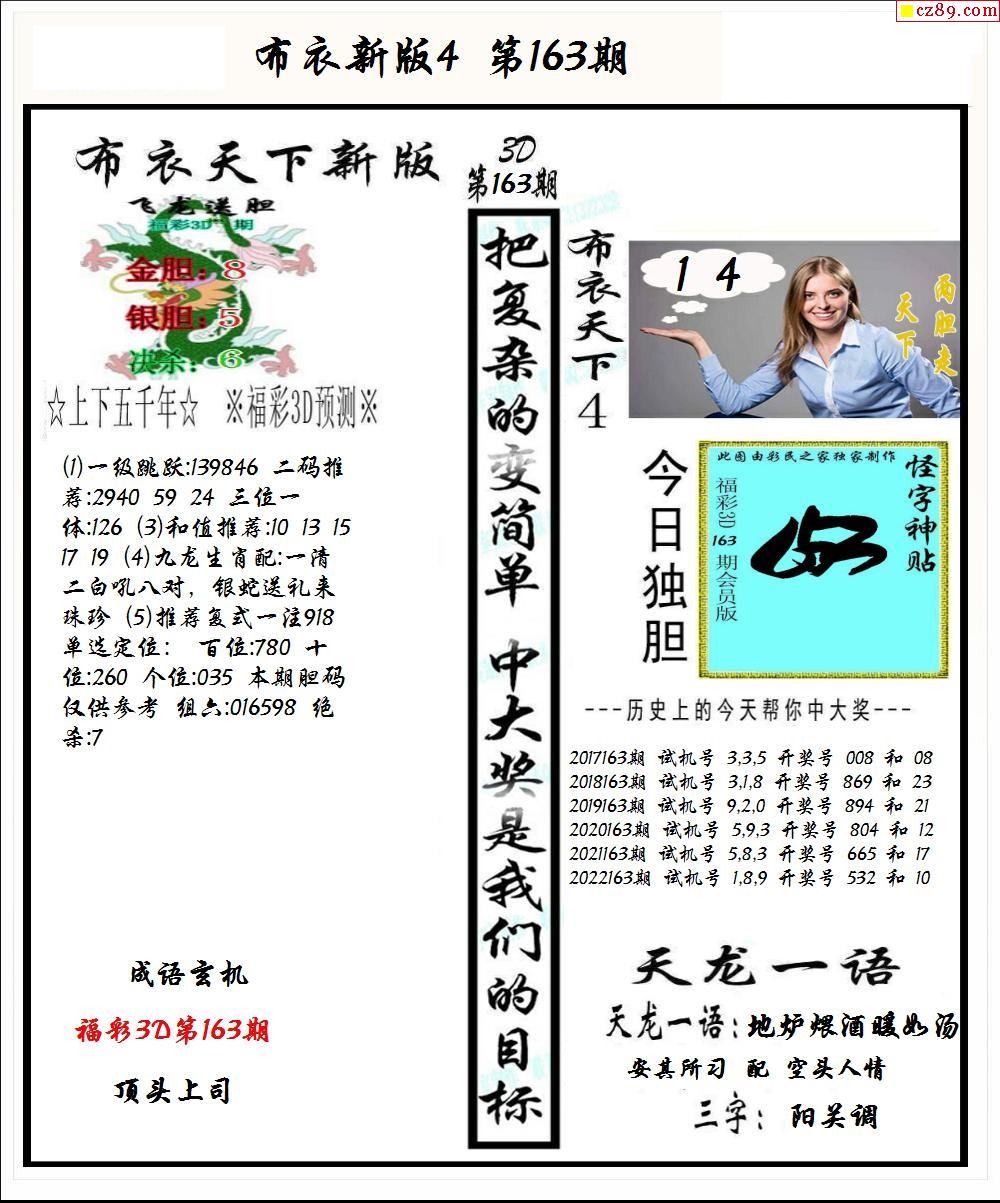 cz89.com
布衣新版4 第163期
布衣天下新版
飞龙送胆
福彩3D 期
金胆：8
银胆：5
决杀：6
☆上下五千年☆ ※福彩3D预测※
(1)一级跳跃:139846 二码推
荐:2940 59 24 三位一
体:126 (3)和值推荐:10 13 15
17 19 (4)九龙生肖配:一清
二白吼八对，银蛇送礼来
珠珍 (5)推荐复式一注918
单选定位： 百位:780 十
位:260 个位:035 本期胆码
仅供参考 组六:016598 绝
杀:7
成语玄机
福彩3D第163期
顶头上司
3D
第163期
把复杂的变简单 中大奖是我们的目标
布衣天下4
1 4
两胆走
天下
今日独胆
此图由彩民之家独家制作
怪字神贴
福彩3D 163 期会员版
---历史上的今天帮你中大奖---
2017163期 试机号 3,3,5 开奖号 008 和 08
2018163期 试机号 3,1,8 开奖号 869 和 23
2019163期 试机号 9,2,0 开奖号 894 和 21
2020163期 试机号 5,9,3 开奖号 804 和 12
2021163期 试机号 5,8,3 开奖号 665 和 17
2022163期 试机号 1,8,9 开奖号 532 和 10
天龙一语
天龙一语：地炉煨酒暖如汤
安其所习 配 空头人情
三字： 阳关调